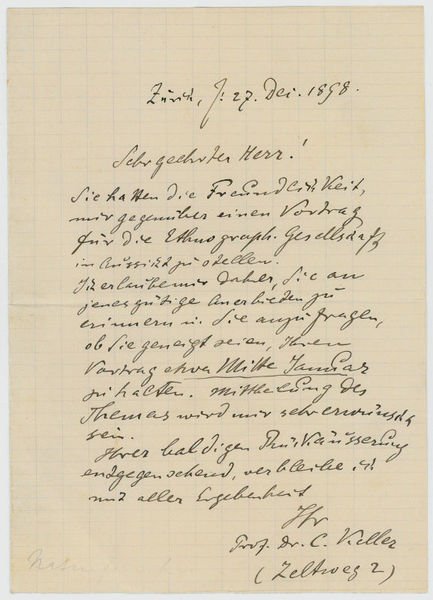 Zürich, d. 27. Dez. 1898.
Sehr geehrter Herr!
Sie hatten die Freundlichkeit,
mir gegenüber einen Vortrag
für die Ethnograph. Gesellschaft
in Aussicht zu stellen.
Ich erlaube mir daher, Sie an
jenes gütige Anerbieten zu
erinnern u. Sie anzufragen,
ob Sie geneigt seien, Ihren
Vortrag etwa Mitte Januar
zu halten. Mittheilung des
Themas wird mir sehr erwünscht
sein.
Ihrer baldigen Rückäusserung
entgegensehend, verbleibe ich
mit aller Ergebenheit
Ihr
Prof. Dr. C. Keller
(Zeltweg 2)